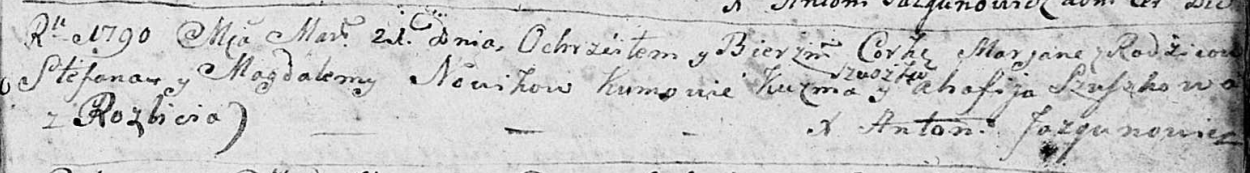 X Anton Jazgunowicz
Rᵘ 1790 Mca Marᵗ. 21. Dnia, Ochrzciłem y Bierzmᵐ Corkę Maryanę z Rodzicow
Stefana y Magdaleny Nowikow Kumowie Kuzma Szuszko y Ahafija Szuszkowa
z Rozlicia)
X Anton: Jazgunowicz